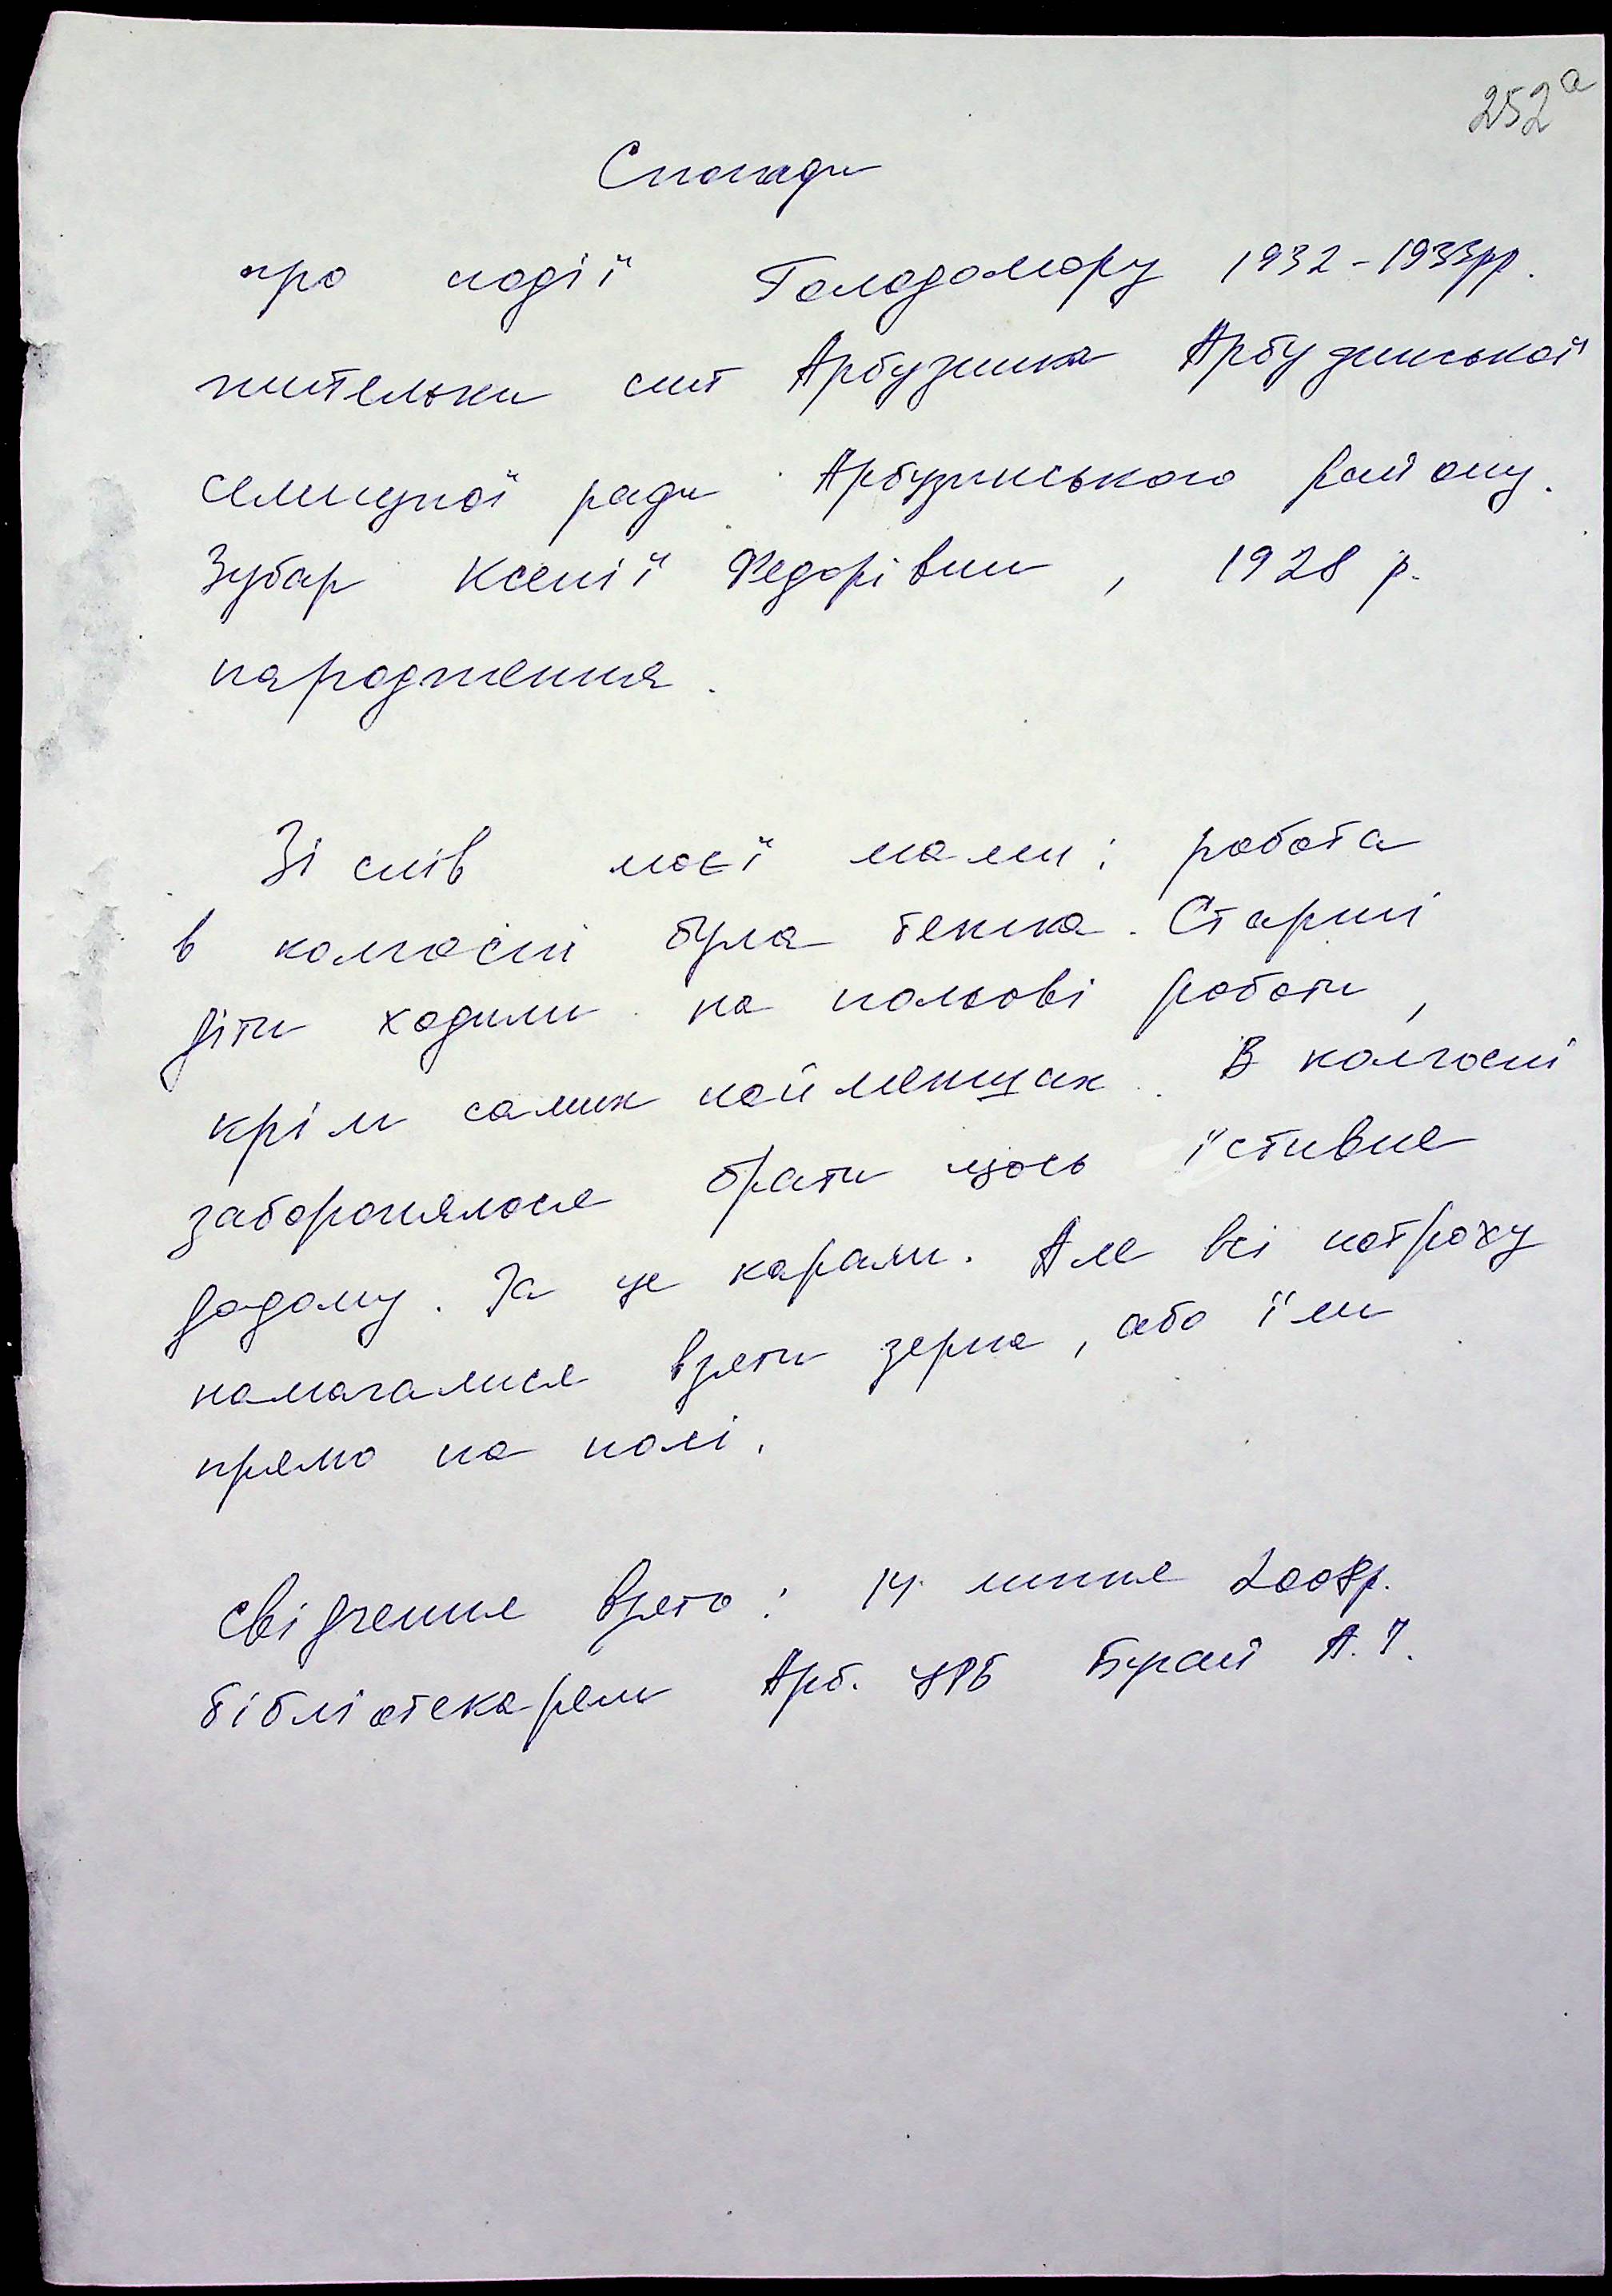 252а
Спогади
про події Голодомору 1932-1933рр.
жительки смт Арбузинка Арбузинської
селищної ради Арбузинського району.
Зубар Ксенії Федорівни, 1928 р.
народження.
Зі слів моєї мами: робота
в колгоспі була тяжка. Старші
діти ходили на польові роботи,
крім самих найменших. В колгоспі
заборонялося брати щось їстивне
додому. За це карали. Але всі потроху
намагалися взяти зерна, або їли
прямо на полі.
Свідчення взято: 14 липня 2008р.
бібліотекарем Арб. ЦРБ А.І.